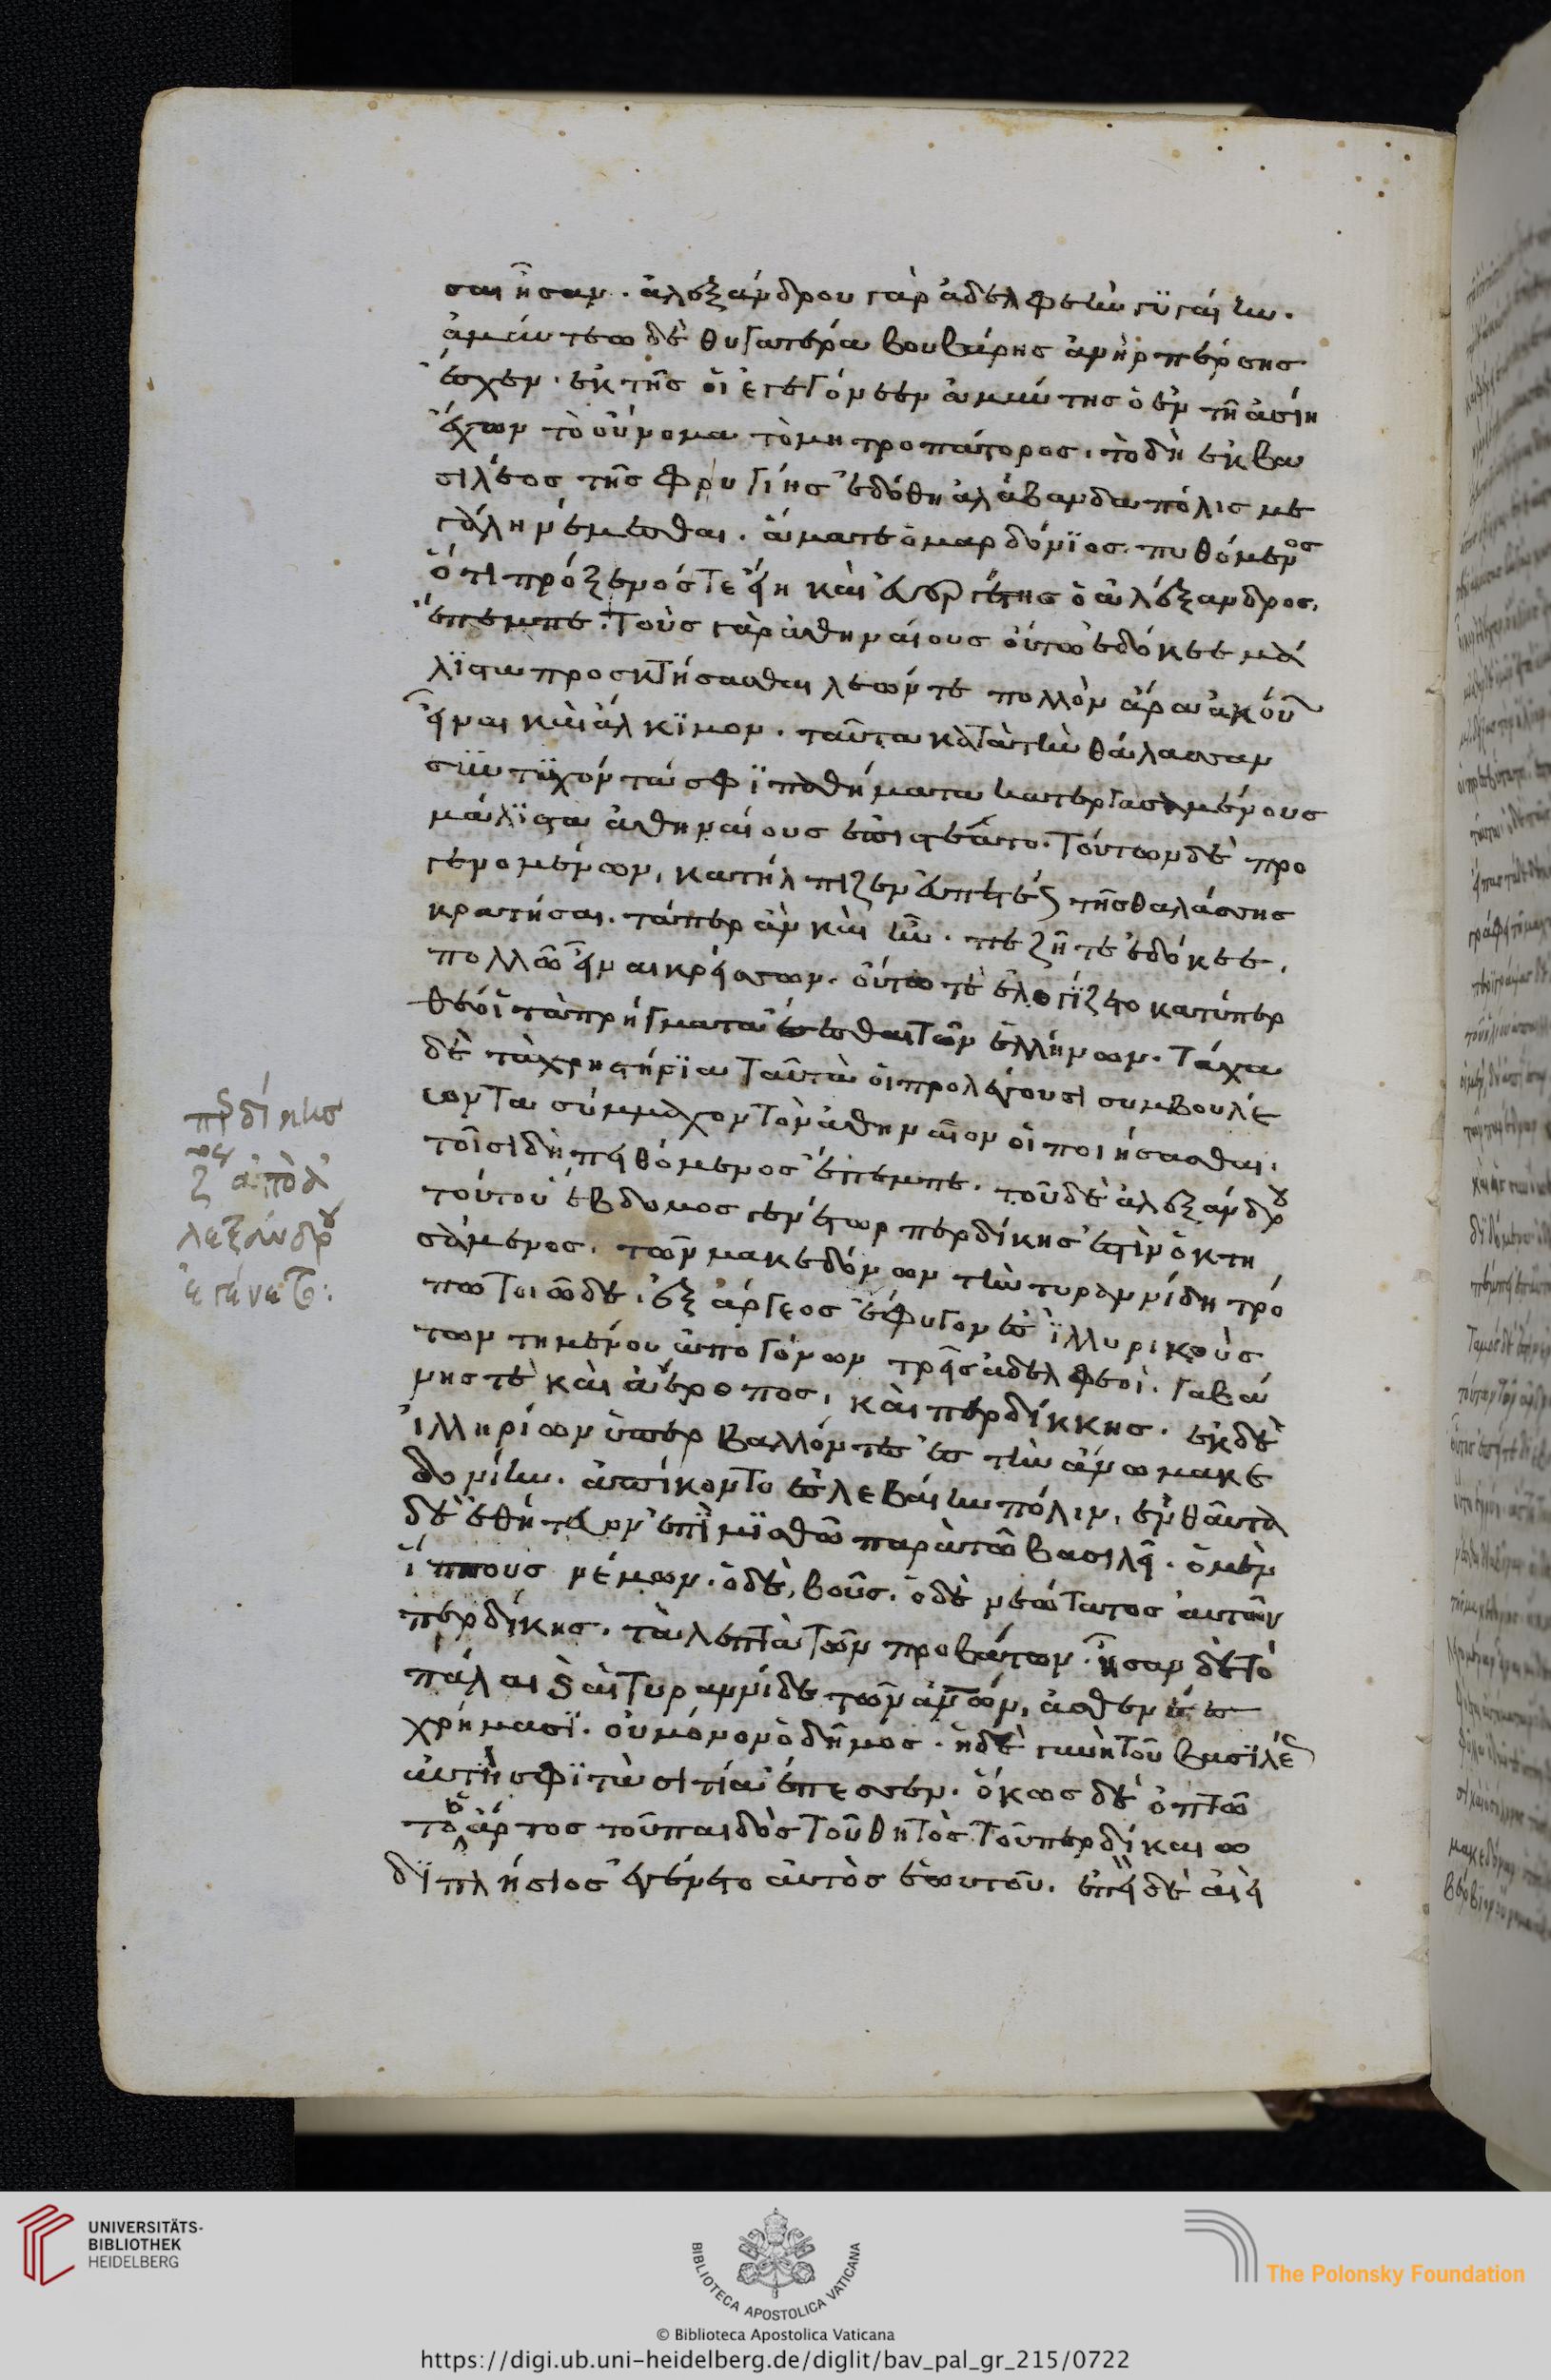 σαι ἦσαν. ἀλεξάνδρου γὰρ ἀδελφεὴν γυγαίην.
ἀμύντεω δὲ θυγατέρα βουβάρης ἀνὴρ πέρσης
ἔσχεν. ἐκ τῆς οἱ ἐγεγόνεεν ἀμύντης ὁ ἐν τῆ ἀσίη
ἔχων τὸ οὔνομα τὸ μητροπάτορος. τὸ δὴ ἐκ βα
σιλέος τῆς φρυγίης ἐδόθη ἀλάβανδα πόλις με
γάλη νέμεσθαι. ἅμα τε ὁ μαρδόνϊος πυθόμενος
ὅτι πρόξενός τε εἴη καὶ εὐεργέτης ὁ ἀλέξανδρος.
ἔπεμπε. τοὺς γὰρ ἀθηναίους οὕτω ἐδόκεε μά
λϊστα προσκτήσασθαι λεών τε πολλὸν ἄρα ἀκούων
εἶναι καὶ ἄλκϊμον. ταῦτα κατὰ τὴν θάλασσαν
συντυχόντα σφϊ παθήματα κατεργασαμένους
μάλϊστα ἀθηναίους ἐπιστέατο. τούτων δὲ προ
γενομένων, κατήλπιζεν εὐπετέως τῆς θαλάσσης
κρατήσαι. τάπερ ἂν καὶ ἦν. πεζῆ τε ἐδόκεε,
πολλῶ εἶναι κρείσσων. οὕτω τὲ ἐλογίζετο κατύπερ
θέ οἱ τὰ πρήγματα ἔσεσθαι τῶν ἑλλήνων. τάχα
δὲ τὰ χρηστήρια ταῦτά οἱ προλέγουσι συμβουλέ
οντα σύμμαχον τὸν ἀθηναῖον οἱ ποιήσασθαι.
τοῖσι δὴ πειθόμενος ἔπεμπε. τοῦ δὲ ἀλεξάνδρου
τούτου ἕβδομος γενέτωρ περδίκης ἐστὶν ὁ κτη
σάμενος. τῶν μακεδόνων τὴν τυραννίδη τρό
πω τοιῶδε. ἐξ ἄργεος ἔφυγον ἐς ἰλλυρικοὺς
τῶν τημένου ἀπογόνων τρεῖς ἀδελφεοί. γαβά
νης τὲ καὶ ἀέροπος, καὶ περδίκκης. ἐκ δὲ
ἰλληρίων ὑπερβαλλόντες ἐς τὴν ἄνω μακε
δονίην. ἀπίκοντο ἐς λεβαίην πόλιν. ἐνθαῦτα
δὲ ἐθήτευον ἐπὶ μϊσθῶ παρὰ τῶ βασιλεῖ. ὁ μὲν
ἵππους νέμων. ὁ δὲ, βοῦς. ὁ δὲ νεώτατος αὐτῶν
περδίκης. τὰ λεπτὰ τῶν προβάτων. ἦσαν δὲ τὸ
πάλαι καὶ αἱ τυραννίδε τῶν ἀνῶν, ἀσθενέες
χρήμασϊ. οὐ μόνον ὁ δῆμος. ἡ δὲ γυνὴ τοῦ βασϊλέος
αὐτή σφϊ τὰ σιτία ἔπεσσεν. ὅκως δὲ ὀπτῶ
το ὁ ἄρτος τοῦ παιδὸς τοῦ θητὸς τοῦ περδίκαιω
διπλήσιος ἐγένετο αὐτὸς ἑωυτοῦ. ἐπεὶ δὲ αἰεὶ
πρδίκης
ζ ἀπὸ ἀ
λεξάνδρου